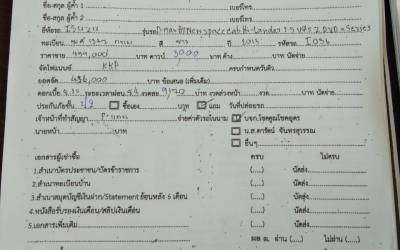 ชื่อ - สกุล ผู้ค้ำ 1 เบอร์โทร
ชื่อ - สกุล ผู้ค้ำ 2 เบอร์โทร
ยี่ห้อรถ ISUZU รุ่นรถ
ทะเบียน สี ขาว ปี 2013 รหัสรถ I036
ราคาขาย บาท ดาวน์ 3000 บาท ค้าง บาท นัดจ่าย
จัดไฟแนนซ์ KKP ครบกำหนดรับคิว
ยอดจัด บาท ข้อเสนอ (เพิ่มเติม)
ดอกเบี้ย ระยะเวลาผ่อน งวดละ 9,170 บาท งวดล่วงหน้า งวด บาท นัดจ่าย
ประกันภัยชั้น ซื้อเอง บาท แถม วันที่ปล่อยรถ
เจ้าหน้าที่ทำสัญญา จ่ายค่าตัวรถในนาม บจก.โชคคูณโชคอุดร
นายหน้า บาท น.ส.ดารัตน์ จันทรสุวรรณ
อื่นๆ
เอกสารผู้เช่าซื้อ ครบ ไม่ครบ
1.สำเนาบัตรประชาชน/บัตรข้าราชการ (....) นัดส่ง
2.สำเนาทะเบียนบ้าน (....) นัดส่ง
3.สำเนาสมุดบัญชีเงินฝาก/Statement ย้อนหลัง 6 เดือน (....) นัดส่ง
4.หนังสือรับรองเงินเดือน/สลิปเงินเดือน (....) นัดส่ง
5.เอกสารเพิ่มเติม (....) นัดส่ง
ผล ผ่าน (....) ไม่ผ่าน (....)